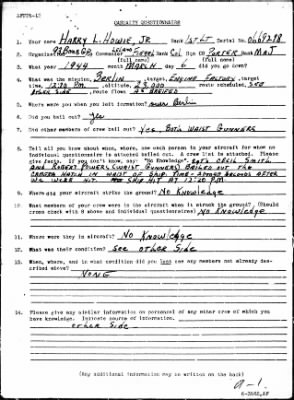 CASUALTY QUESTIONNAIRE
1. Your name HARRY L. HOWIE, JR Rank 1st LT Serial No.
(full name) (full name)
3. What year 1944 month MARCH day 6 did you go down?
4. What was the mission, BERLIN, target, ENGINE FACTORY, target
time, 12:30 PM, altitude, 23,000 route scheduled, SEE
OTHER SIDE, route flown AS BRIEFED
5. Where were you when you left formation? over Berlin
6. Did you bail out? yes
7. Did other members of crew bail out? Yes, Both WAIST GUNNERS
8. Tell all you know about when, where, how each person in your aircraft for whom no
individual questionnaire is attached bailed out. A crew list is attached. Please
give facts. If you don't know, say: "No Knowledge". BOTH CECIL SMITH
AND ROGER POWERS (WAIST GUNNERS) BAILED OUT THE
ESCAPE HATCH IN WAIST OF SHIP
WE WERE HIT. SHIP HIT AT 12:30 PM.
9. Where did your aircraft strike the ground? NO KNOWLEDGE
10. What members of your crew were in the aircraft when it struck the ground? (Should
cross check with 8 above and individual questionnaires) NO KNOWLEDGE
11. Where were they in aircraft? NO KNOWLEDGE
12. What was their condition? SEE OTHER SIDE
13. When, where, and in what condition did you last see any members not already des-
cribed above?
NONE
14. Please give any similar information on personnel of any other crew of which you
have knowledge. Indicate source of information.
OTHER SIDE
(Any additional information may be written on the back)